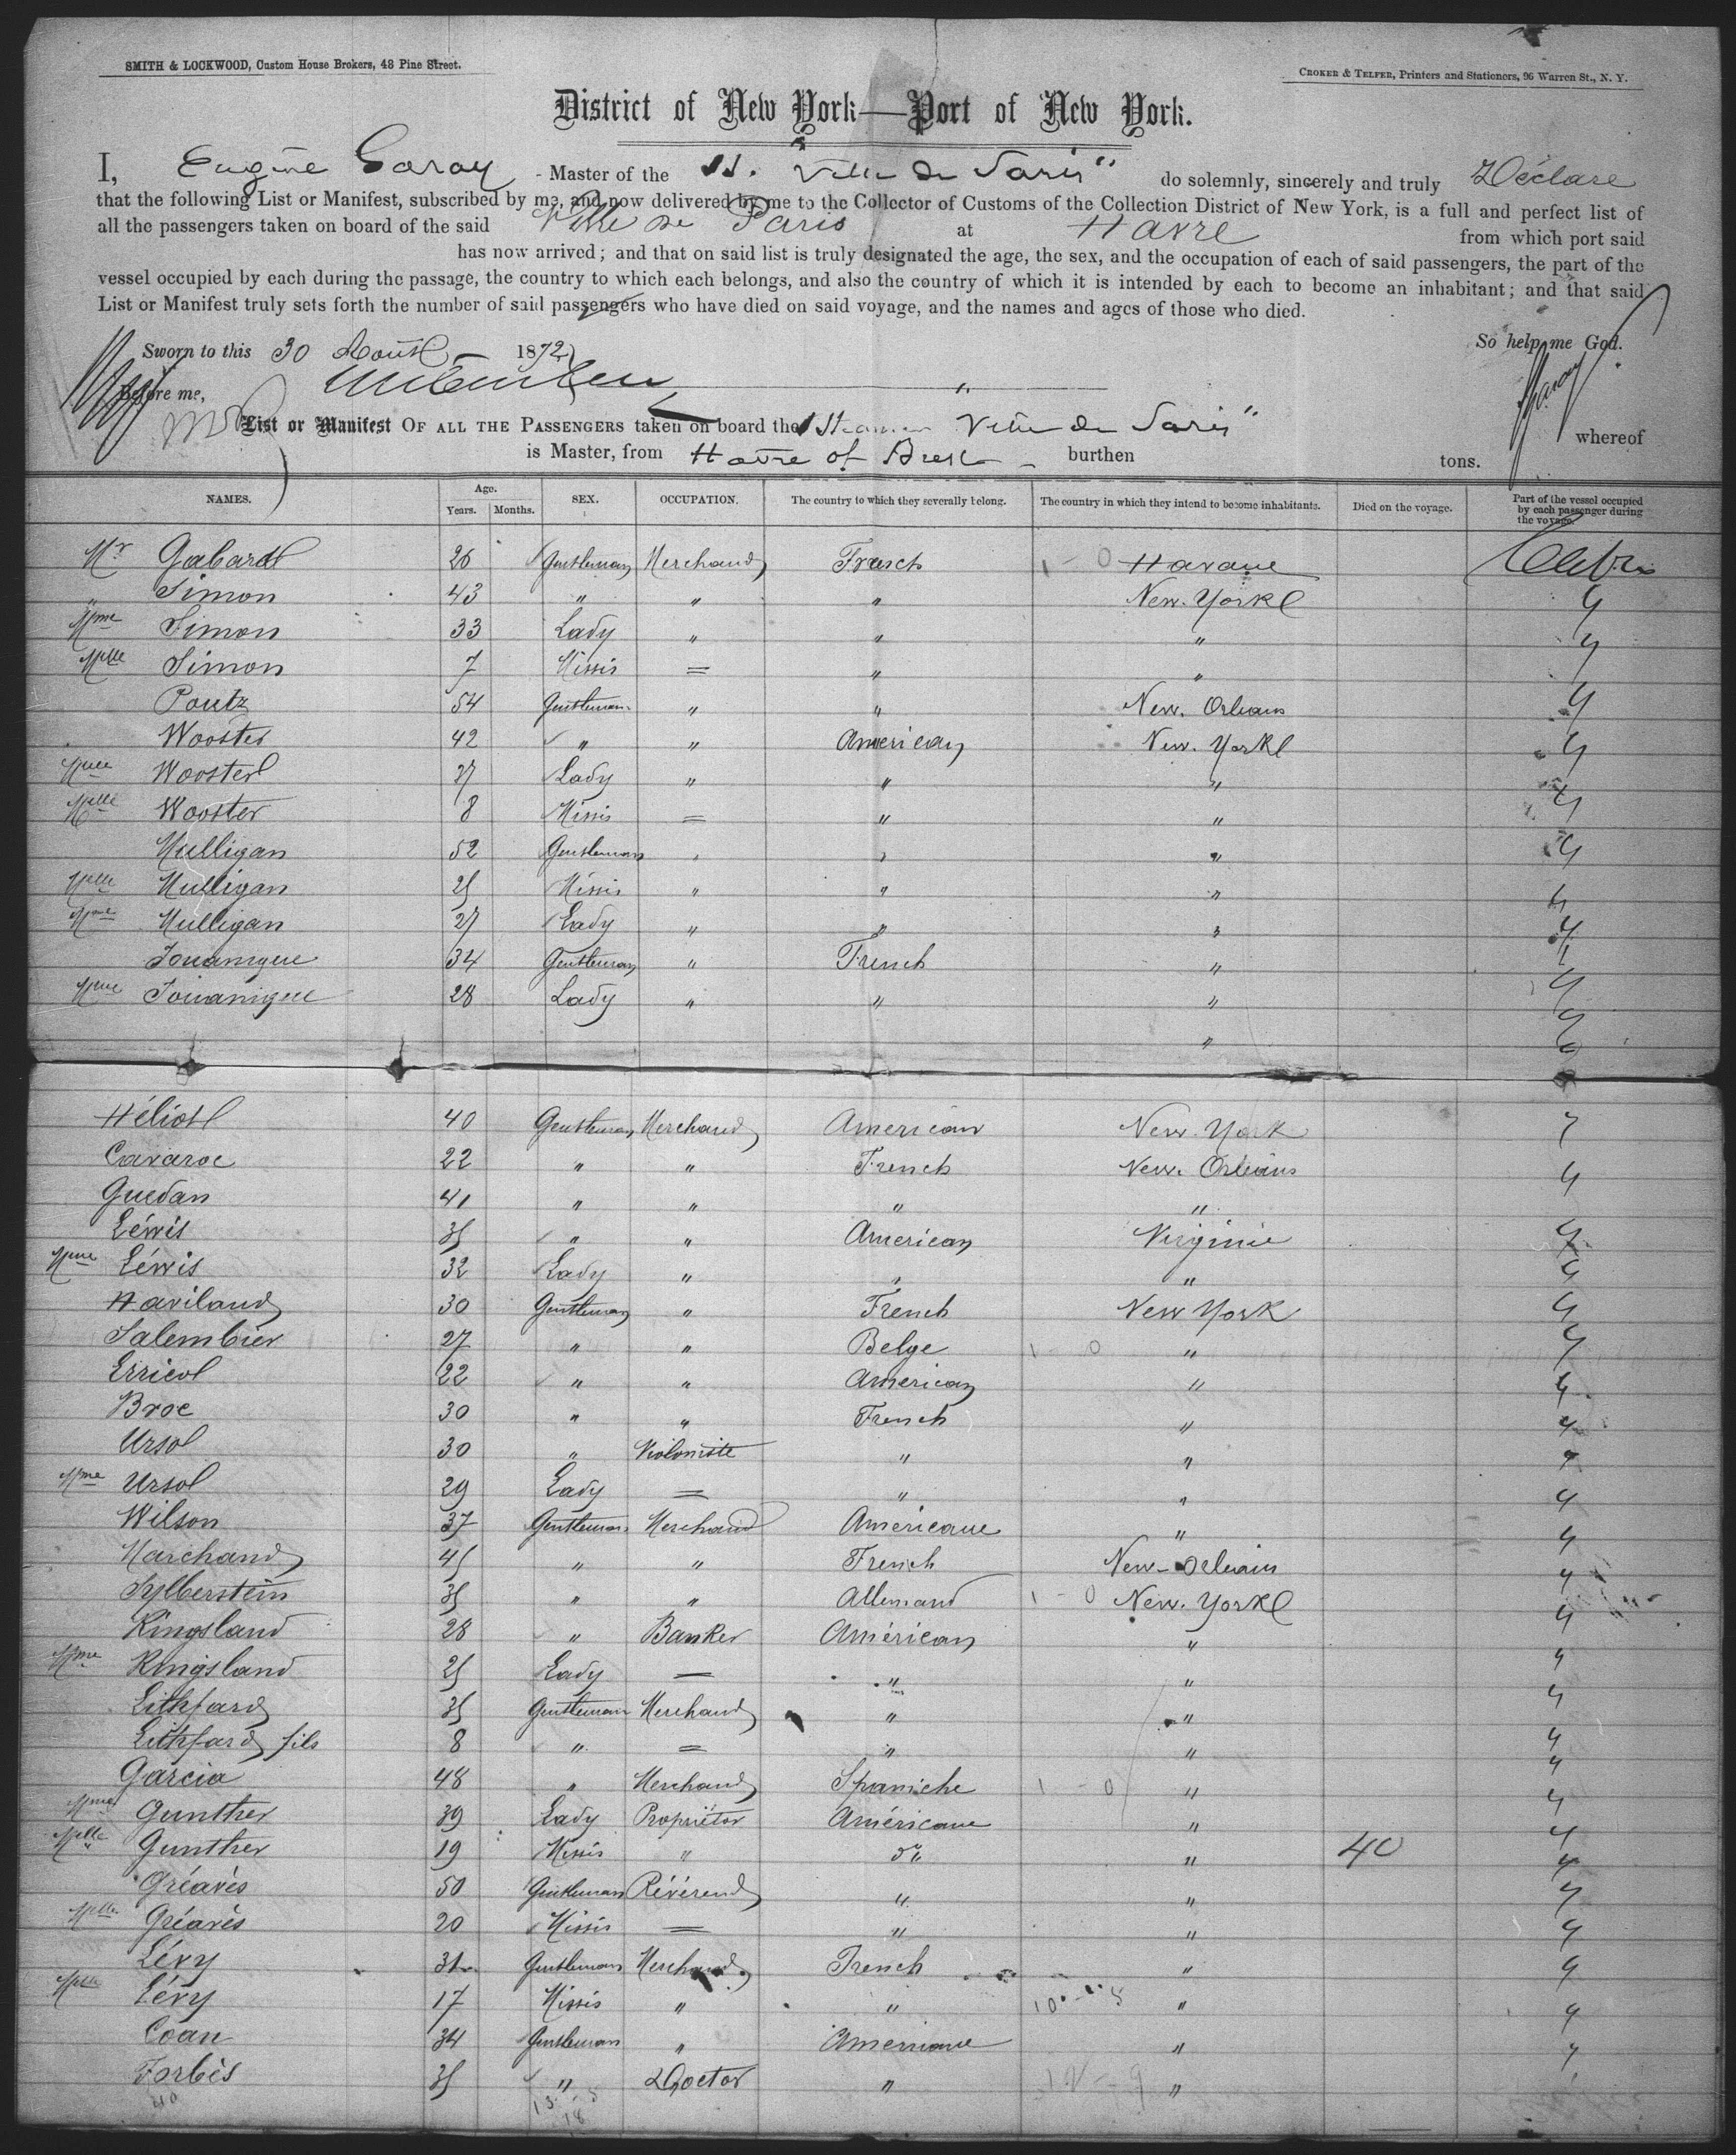 SMITH & LOCKWOOD, Custom House Brokers, 48 Pine Street.
CROKER & TELFER, Printers and Stationers, 96 Warren St., N. Y.
District of New York—Port of New York.
I, Eugène Master of the "Ville de Paris" do solemnly, sincerely and truly Déclare
that the following List or Manifest, subscribed by me, and now delivered by me to the Collector of Customs of the Collection District of New York, is a full and perfect list of
all the passengers taken on board of the said Ville de Paris at Havre from which port said
has now arrived; and that on said list is truly designated the age, the sex, and the occupation of each of said passengers, the part of the
vessel occupied by each during the passage, the country to which each belongs, and also the country of which it is intended by each to become an inhabitant; and that said
List or Manifest truly sets forth the number of said passengers who have died on said voyage, and the names and ages of those who died.
Sworn to this 30 Août 1872 So help me God.
Before me,
List or Manifest OF ALL THE PASSENGERS taken on board the Steamer Ville de Paris" whereof
is Master, from Havre of Brest burthen tons.
NAMES. Age. Years. Months. SEX. OCCUPATION. The country to which they severally belong. The country in which they intend to become inhabitants. Died on the voyage. Part of the vessel occupied by each passenger during the voyage.
Mr Gabard 26 Gentleman Merchand French 1 - 0 Havane
" Simon 43 " " " New. York "
Mme Simon 33 Lady " " " "
Melle Simon 7 Missis = " " "
Poutz 54 Gentleman " " New. Orleans "
Wooster 42 " " American New. York "
Mme Wooster 27 Lady " " " "
Melle Wooster 8 Missis = " " "
Mulligan 52 Gentleman " " " "
Melle Mulligan 25 Missis " " " "
Mme Mulligan 27 Lady " " " "
34 Gentleman " French " "
Mme 28 Lady " " " "
"
Héliot 40 Gentleman Merchand American New. York "
Cavaroc 22 " " French New. Orleans "
Guedan 41 " " " "
Léwis 35 " " American Virginie "
Mme Léwis 32 Lady " " " "
Haviland 30 Gentleman " French New York "
Salembier 27 " " Belge 1 - 0 " "
Erricol 22 " " American " "
Broc 30 " " French " "
Ursol 30 " Violoniste " " "
Mme Ursol 29 Lady = " " "
Wilson 37 Gentleman Merchand Américane " "
Marchand 45 " " French New-Orleain "
Sylberstein 35 " " Allemand 1 - 0 New. York "
Kingsland 28 " Banker Américan " "
Mme Kingsland 25 Lady — " " "
Lithfard 35 Gentleman Merchand " " "
Lithfard fils 8 " = " " "
Garcia 48 " Merchand Spaniche 1 - 0 " "
Mme Gunther 39 Lady Propriétor Américane " "
Melle Gunther 19 Missis " do " 40 "
Gréavès 50 Gentleman Révérend " " "
Melle Gréavès 20 Missis = " " "
Lévy 31 Gentleman Merchand French " "
Melle Lévy 17 Missis " " 10 - 5 " "
Coan 34 Gentleman " Américane " "
Forbès 35 " Doctor " 12 - 9 "
40 13 - 5
18